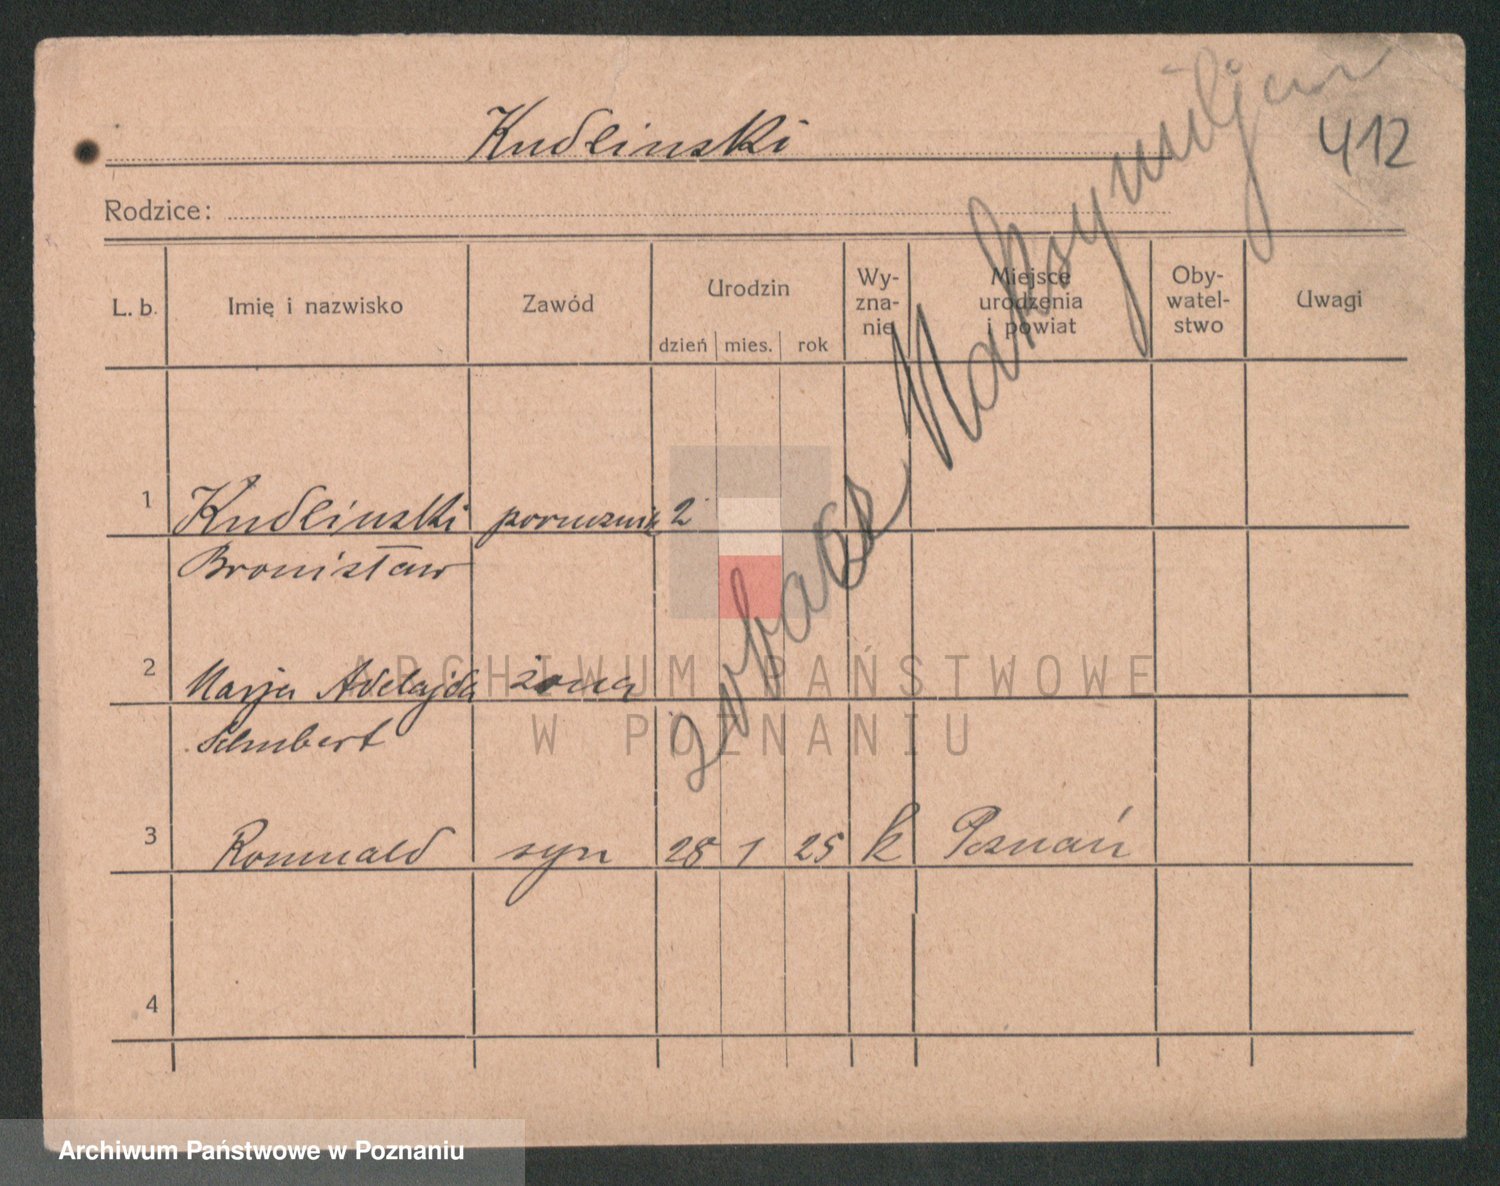 Kudlinski
412
Rodzice:
zobacz Maksymiljan
L. b.
Imię i nazwisko
Zawód
Urodzin
dzień
mies.
rok
Wy-
zna-
nie
Miejsce
urodzenia
i powiat
Oby-
watel-
stwo
Uwagi
1 Kudlinski porucznik 2
Bronisław
2 Marja Adelajda żona
Schubert
3 Romuald syn 28 1 25 k Poznań
4
ARCHIWUM PAŃSTWOWE
W POZNANIU
Archiwum Państwowe w Poznaniu